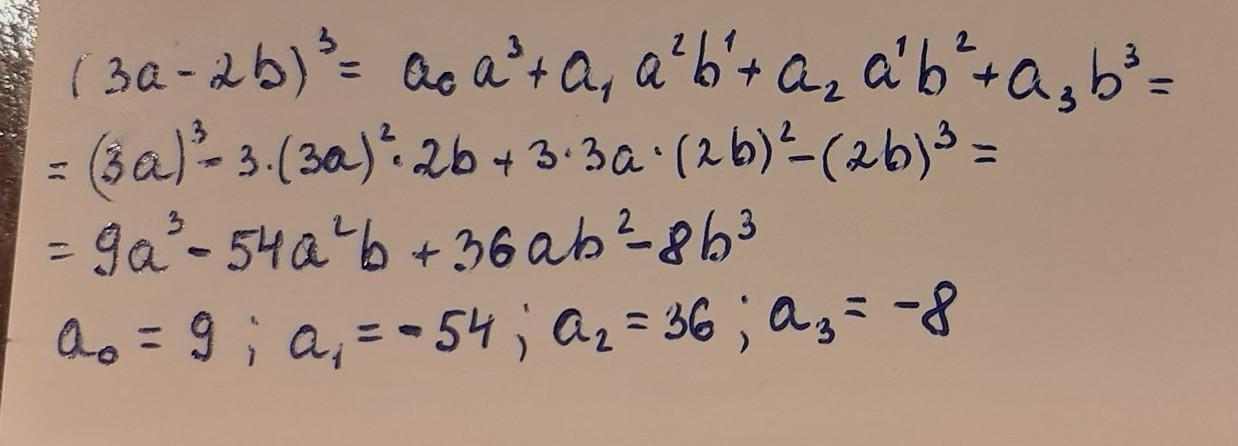 (3a - 2b)³ = a₀a³ + a₁a²b¹ + a₂a¹b² + a₃b³ =
= (3a)³ - 3·(3a)²·2b + 3·3a·(2b)² - (2b)³ =
= 9a³ - 54a²b + 36ab² - 8b³
a₀ = 9 ; a₁ = -54 ; a₂ = 36 ; a₃ = -8